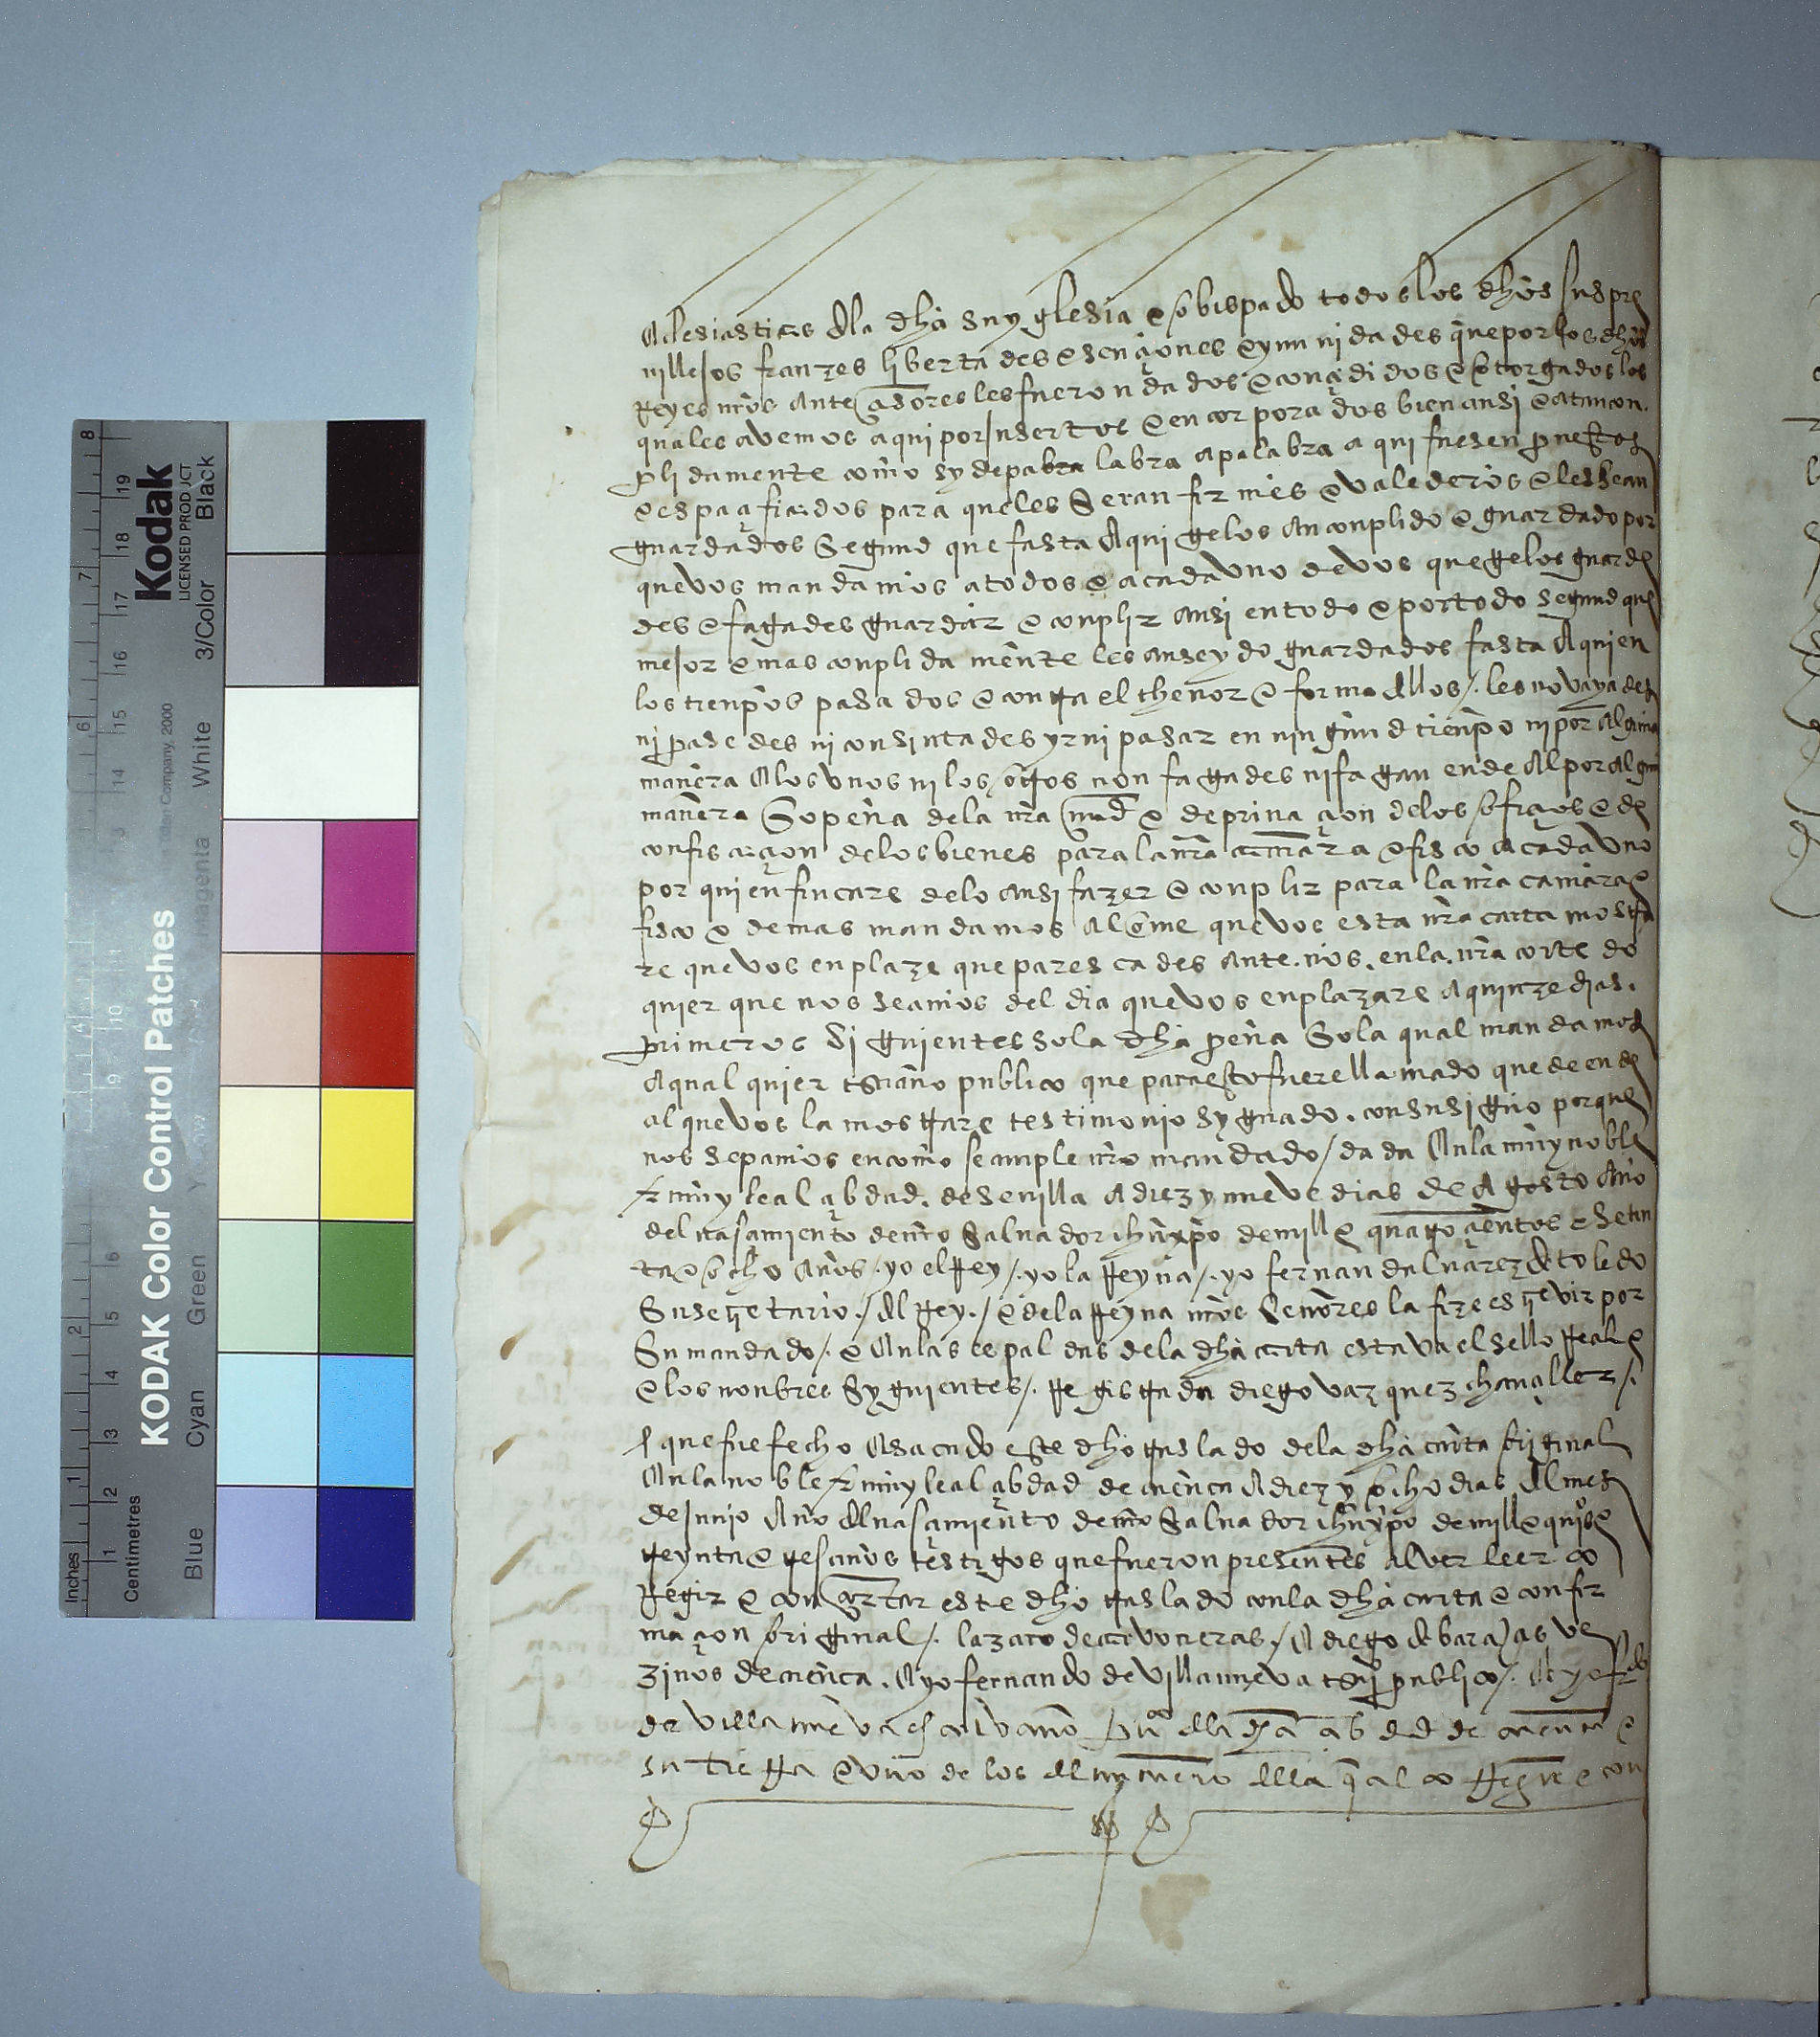 eclesiasticos dla dha su yglesia e obispado todos los dhos sus pre
uillejos franzes libertades esençiones e ynmunidades que por los dhos
Reyes nros anteçesores les fueron dados e conçedidos e otorgados los
quales avemos aqui por Insertos e encorporados bien ansi e atan con
plidamente como sy de pabra labra a palabra aqui fuesen puestos
e espaçificados para que les seran firmes e valederos e les sean
guardados segund que fasta Aqui gelos an conplido e guardado por
que vos mandamos a todos e a cada vno de vos que gelos guarde
des e fagades guardar e conplir ansi en todo e por todo segund que
mejor e mas conplidamente les an seydo guardados fasta Aqui en
los tienpos pasados e contra el thenor e forma dllos /. les no vayades
ni pasedes ni consintades yr ni pasar en ningund tienpo ni por Alguna
manera A los vnos ni los otros non fagades ni fagan ende Al por algua
manera So pena de la nra md e de priuaçion de los ofiçios e de
confiscaçion de los bienes para la nra camara e fisco A cada vno
por quien fincare de lo ansi fazer e conplir para la nra camara e
fisco e demas mandamos Al ome que vos esta nra carta mostra
re que vos enplaze que parescades ante nos en la nra corte do
quier que nos seamos del dia que vos enplazare a quinze dias
primeros siguientes so la dha pena So la qual mandamos
A qual quier escriuano publico que para esto fuere llamado que de ende
al que vos la mostrare testimonio sygnado con su signo por que
nos sepamos en como se cunple nro mandado / dada En la muy noble
e muy leal çibdad de seuilla A diez y nueve dias de Agosto Año
del nasçimiento de nro Saluador ihu xpo de mill e quatroçientos e seten
ta e ocho años . yo el Rey /. yo la Reyna /. yo fernand aluarez de toledo
Su secretario / dl Rey / e de la Reyna nros señores la fize escreuir por
Su mandado /. e En las espaldas de la dha carta estava el sello Real e
e los nonbres Syguientes /. Registrada diego vazquez chançeller /.
E que fue fecho A sacado este dho traslado de la dha carta original
En la noble e muy leal çibdad de cuenca A diez y ocho dias dl mes
de Junio Año dl nasçimiento de nro Saluador ihu xpo de mill e quiºs e
treynta e tres años testigos que fueron presentes al ver leer co
Regir e conçertar este dho traslado con la dha carta e confir
maçion original /. lazaro de carvoneras / A diego de barajas ve
zinos de cuenca . A yo fernando de villanueva escriuº publico /. E yo frdo
de villanueva escrivano puco dla dha çibdad de cuenca e
su tierra e vno de los dl numero dlla qual corregi e con